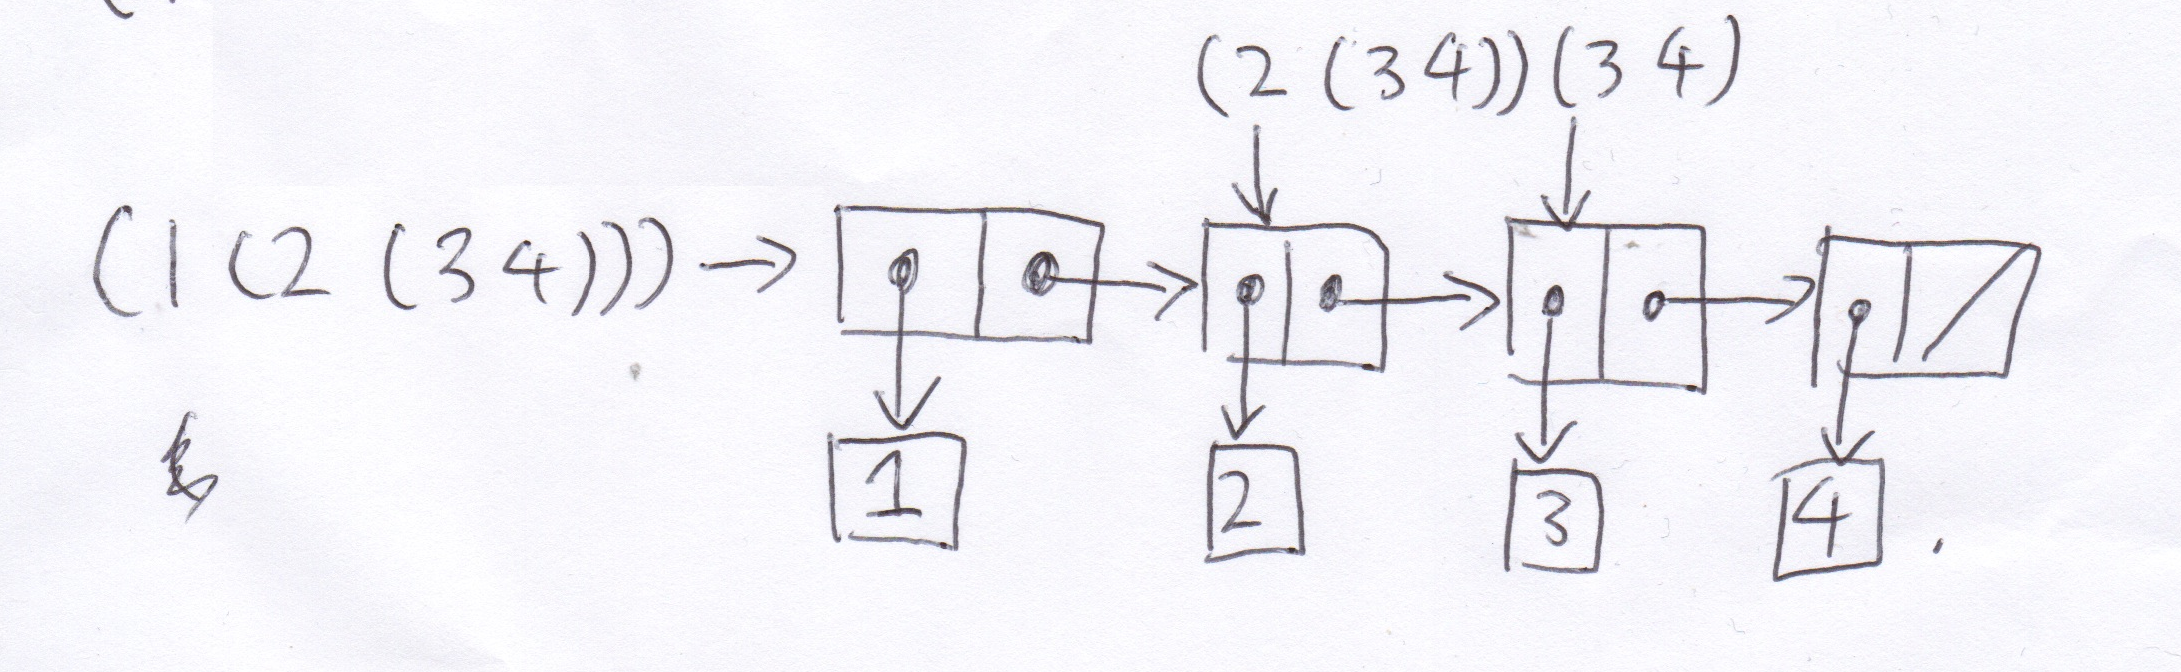 (2 (3 4)) (3 4)
(1 (2 (3 4))) →
1 2 3 4